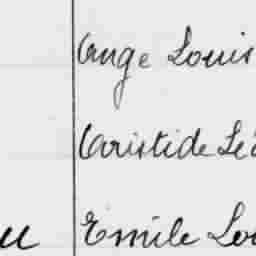 Ange Louis
Aristide Lé
Emile Lou